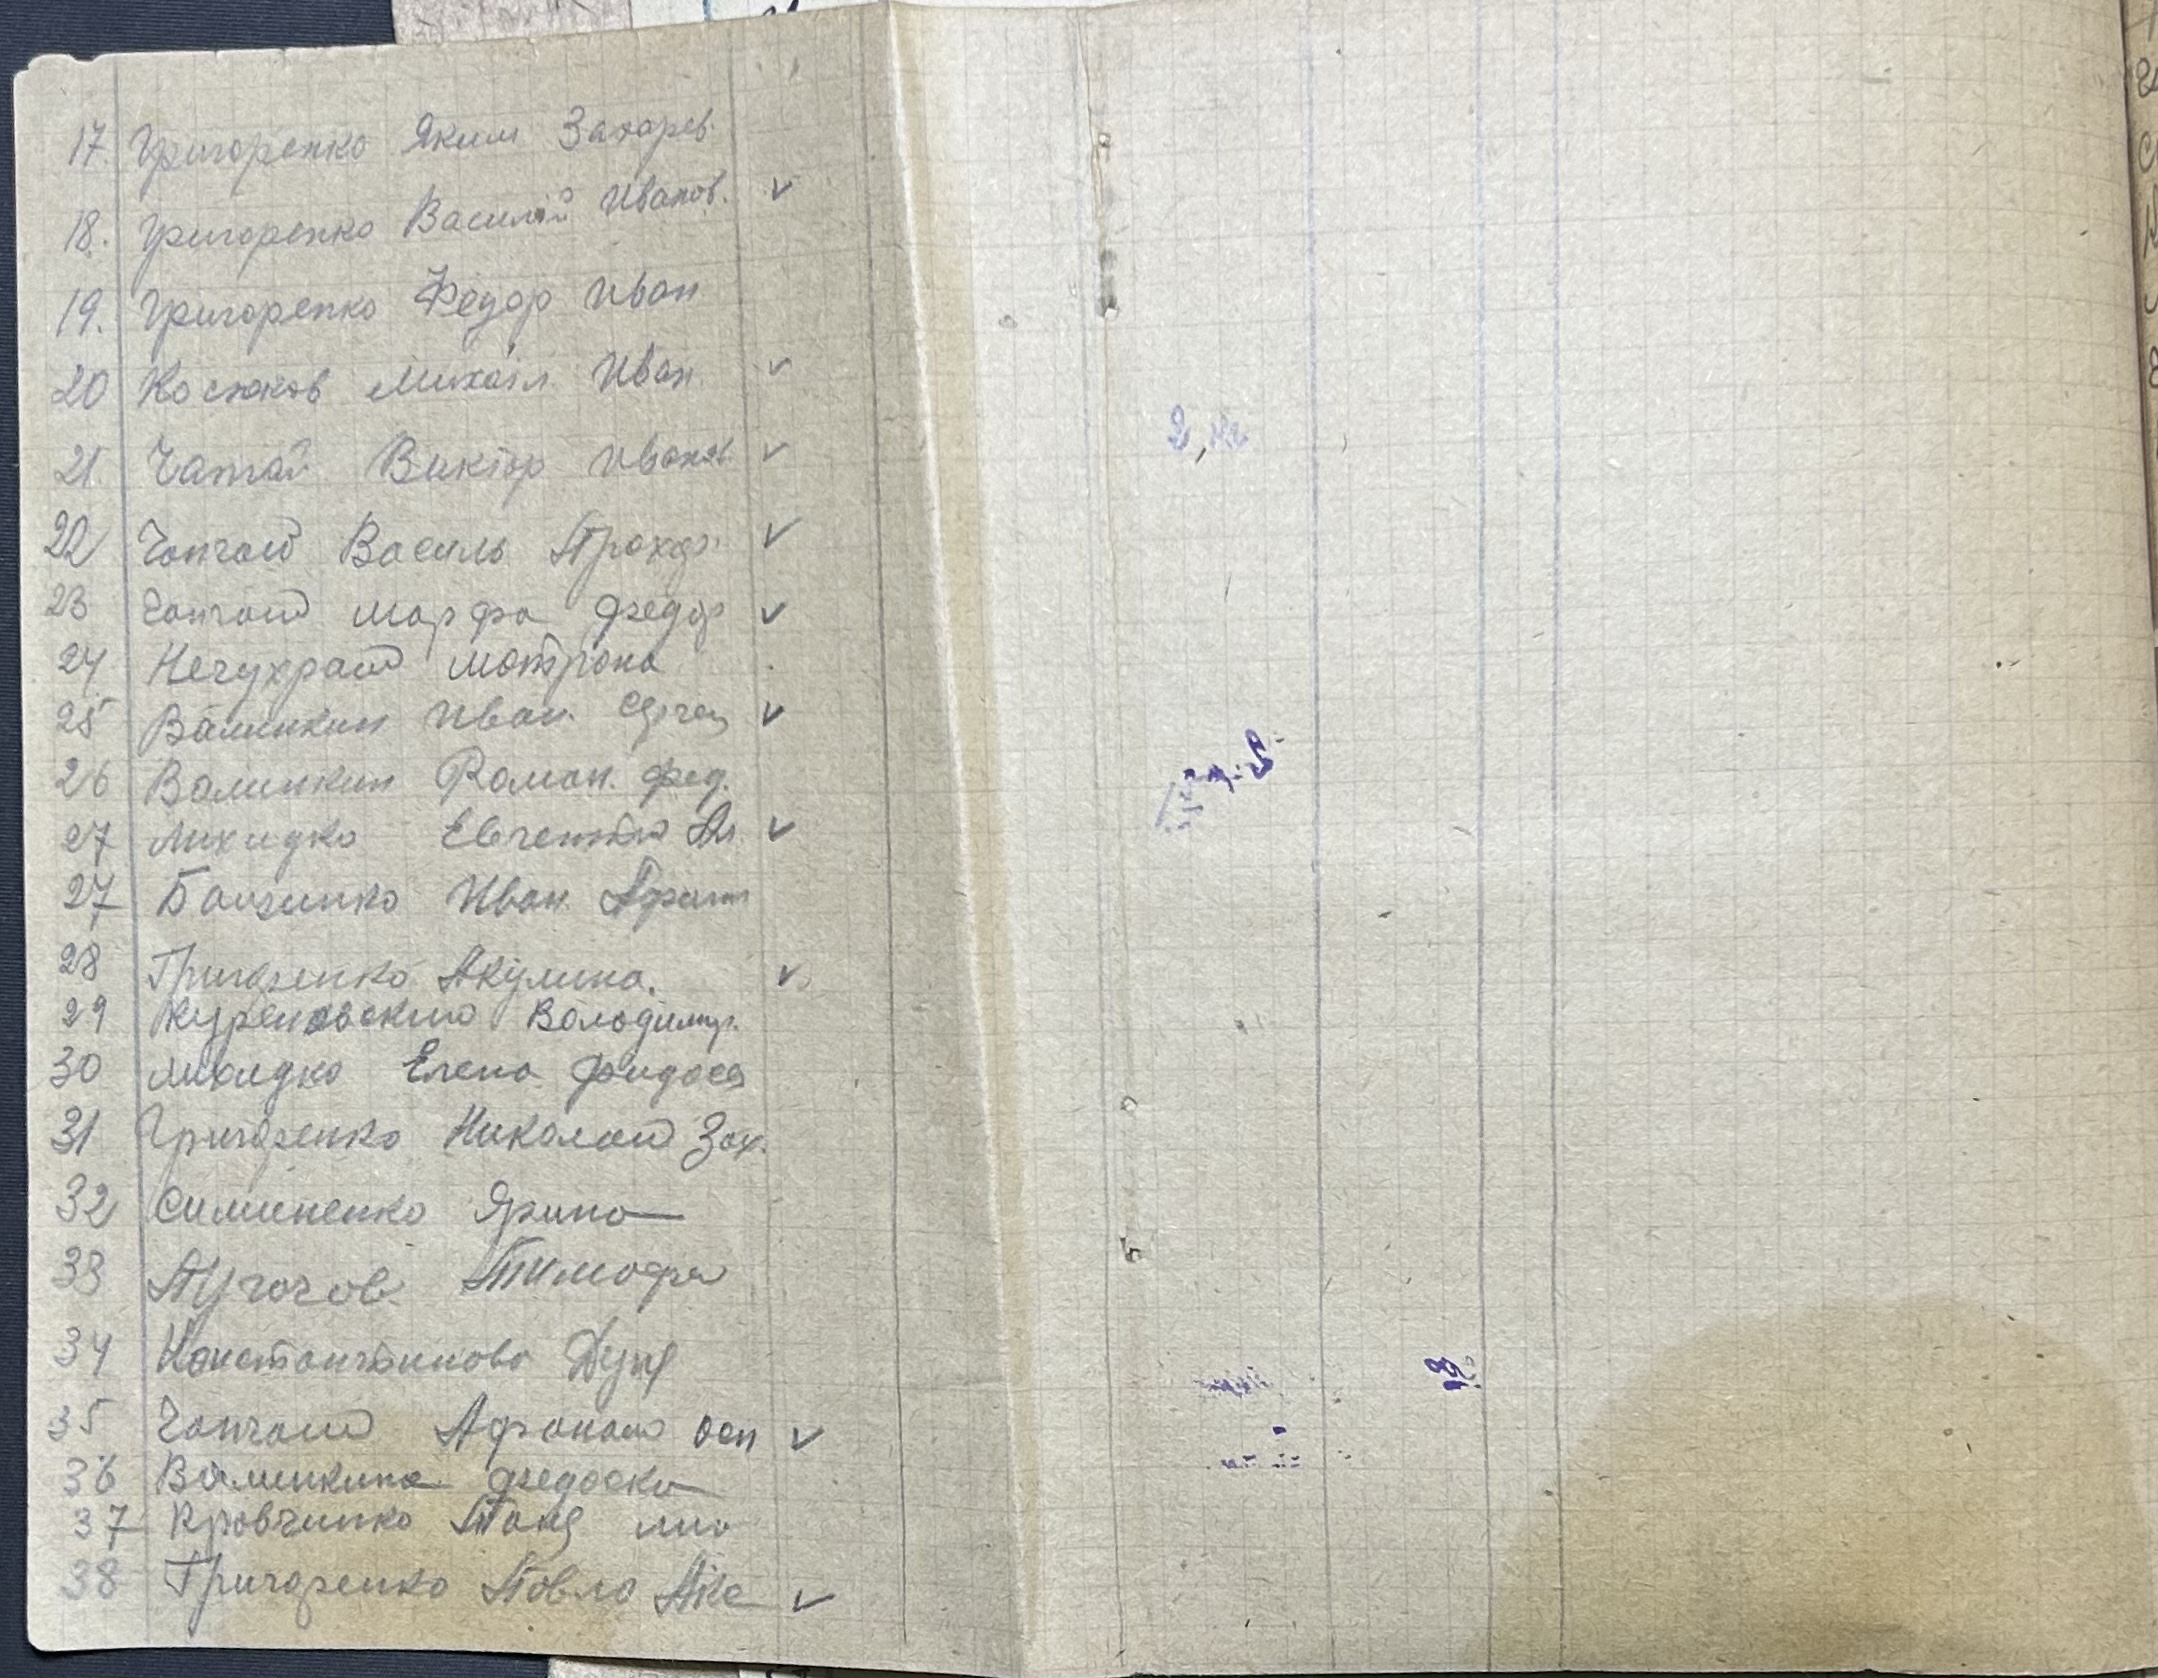 17. Григоренко Яким Захарев.
18. Григоренко Василий Иванов. ✓
19. Григоренко Федор Иван
20 Костюков Михаіл Иван ✓
21. Чапгай Виктор Иванов ✓
22 Чапгай Василь Прохор. ✓
23 Чапгай Марфа Федор ✓
24 Нечухрай Мотрона
25 Валинкин Иван. ✓
26 Валинкин Роман. Фед.
27 Лихидко Евгенія ✓
27 Иван.
28 Григоренко Акулина. ✓
29 Журековский Володимир.
30 Лихидко Елена Фидосей
31 Григоренко Николай Зах.
32 Симиненко Ярина
33 Пугачов Тимофей
34 Константинова Дуня
35 Чапгай Афанай Осп ✓
36 Валинкина Федоска
37 Кравчинко Таня
38 Григоренко Павло ✓